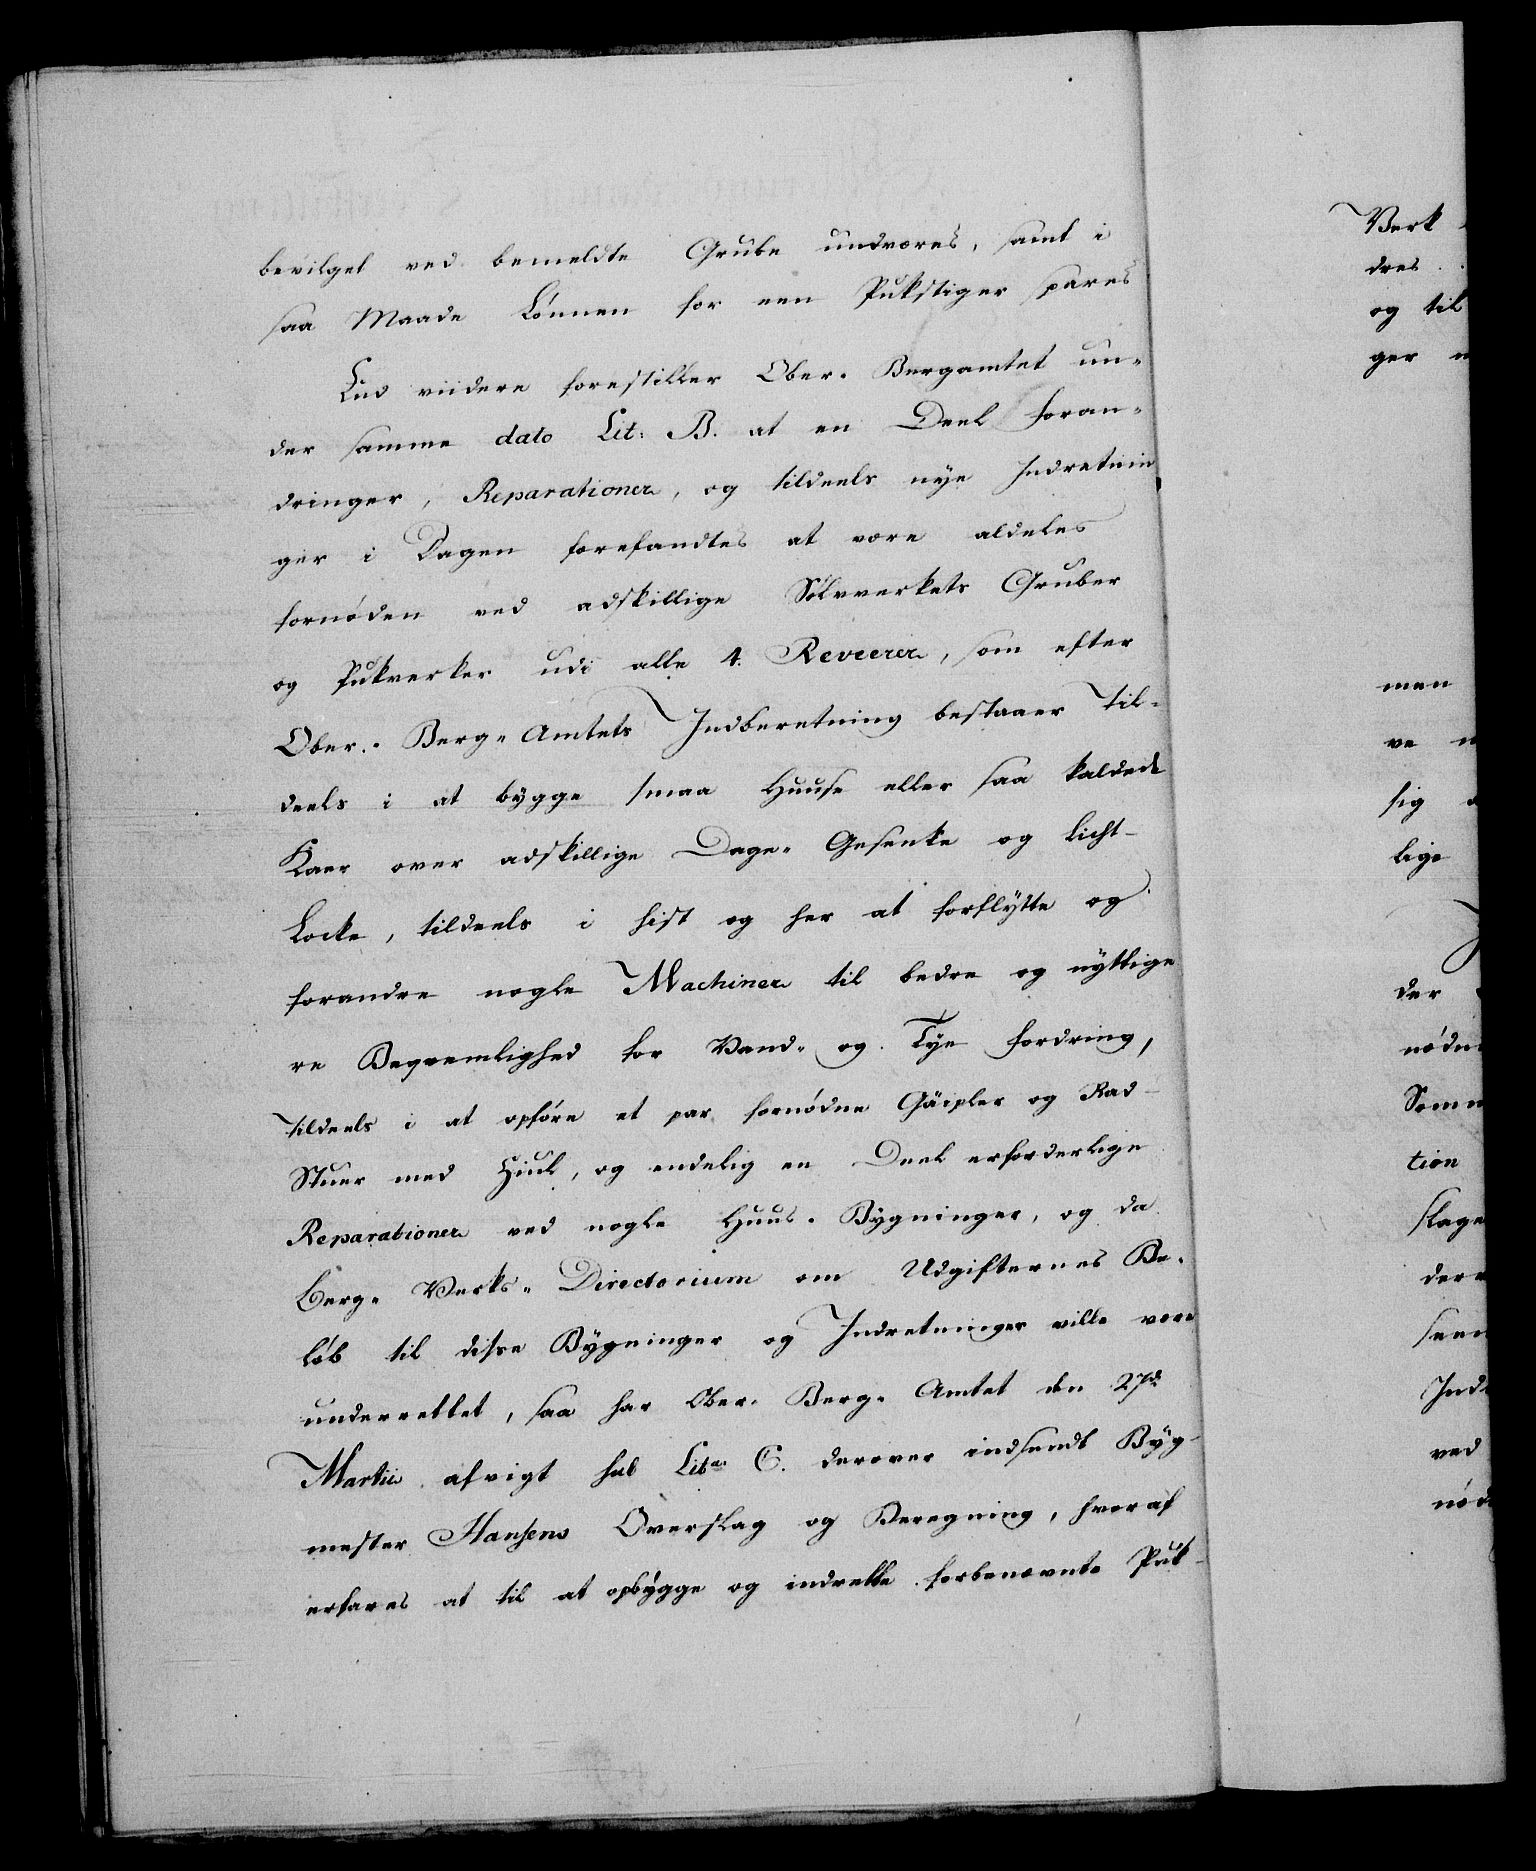 bevilget ved bemeldte Grube undværes, samt i
saa Maade Lønnen for een Pukstiger spares
End viidere forestiller Ober-Bergamtet un-
der samme dato Lit: B. at en Deel foran-
dringer, Reparationer, og tildeels nye Indretnin
ger i Dagen forefandtes at være aldeles
fornøden ved adskillige Sølvverkets Gruber
og Pukverker udi alle 4. Reveerer, som efter
Ober-Berg-Amtets Indberetning bestaaer til-
deels i at bygge smaa Huuse eller saa kaldede
Kaer over adskillige Dage-Gesenke og Licht-
Locke, tildeels i hist og her at forflytte og
forandre nogle Machiner til bedre og nyttige
re Beqvemlighed for Vand- og Tye fordring,
tildeels i at opføre et par fornødne Gäipler og Rad-
Stuer med Hiul, og endelig en Deel erforderlige
Reparationer ved nogle Huus-Bygninger, og da
Berg-Verks-Directorium om Udgifternes Be-
løb til disse Bygninger og Indretninger ville være
underrettet, saa har Ober-Berg-Amtet den 27de
Martii afvigt sub Litr. C. derover indsendt Byg-
mester Hansens Overslag og Beregning, hvoraf
erfares at til at opbygge og indrette forbenævnte Puk-
Verk
dres
og til
ger
men
ve
sig
lige
der
nødne
Som
tion
slage
der
seen
Ind
ved
nød